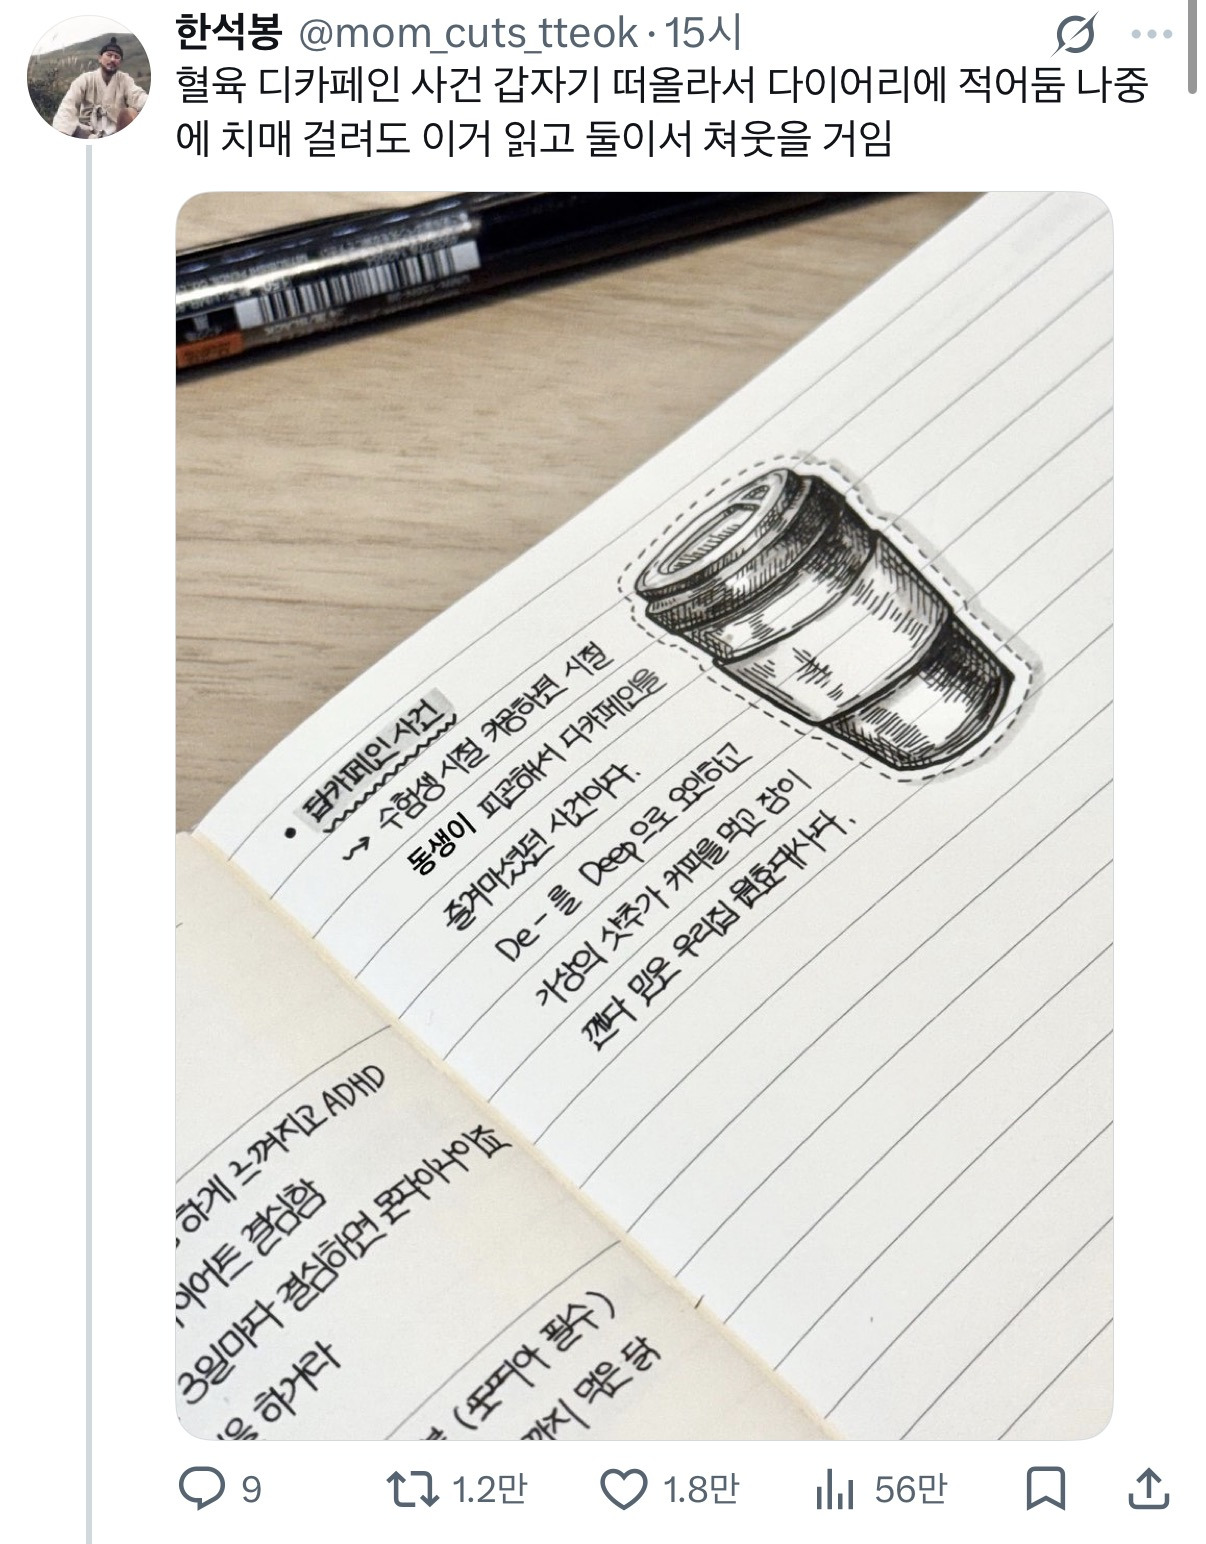 한석봉 @mom_cuts_tteok · 15시
혈육 디카페인 사건 갑자기 떠올라서 다이어리에 적어둠 나중
에 치매 걸려도 이거 읽고 둘이서 쳐웃을 거임
• 딥카페인 사건
→ 수험생 시절 카공하던 시절
동생이 피곤해서 디카페인을
즐겨마셨던 사건이다.
De - 를 Deep으로 오인하고
가상의 샷추가 커피를 먹고 잠이
깬다 믿은 우리집 원효대사다.
하게 느껴지고 ADHD
이어트 결심함
3일마다 결심하면 문다이나이죠
을 하거라
(또띠아 필수)
까지 먹은 닭
9 1.2만 1.8만 56만